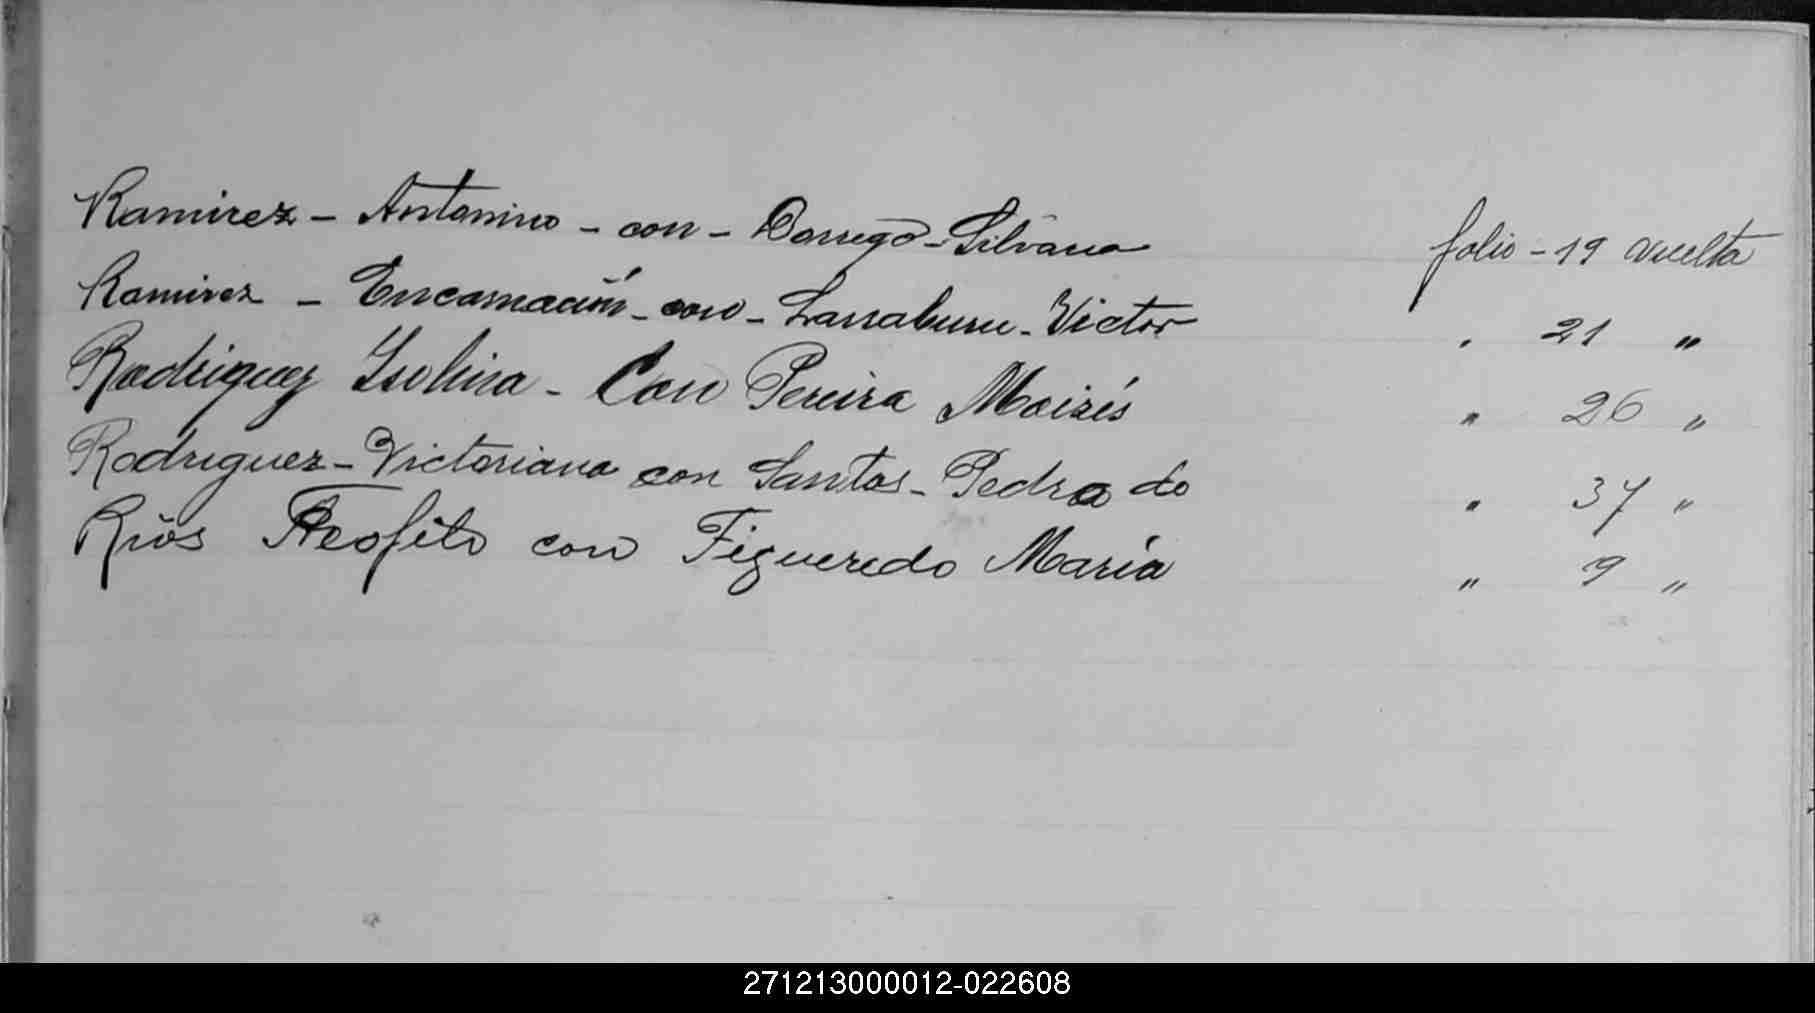 Ramirez - Antonino - con - Dorrego - Silvana folio - 19 vuelta
Ramirez - Encarnación - con - Larraburu - Victor " 21 "
Rodriguez Isolina - Con Pereira Moisés " 26 "
Rodriguez - Victoriana con Santos - Pedro do " 37 "
Ríos Teofilo con Figueredo María " 9 "
271213000012-022608